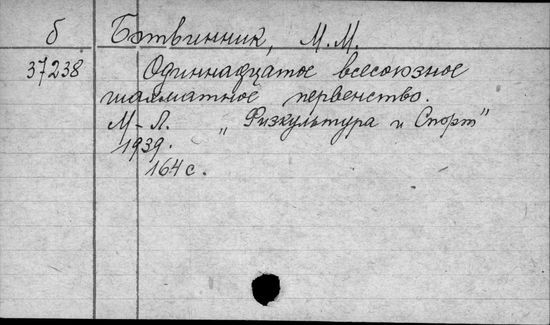 б Ботвинник, М.М.
37238 Одиннадцатое всесоюзное
шахматное первенство.
М-Л. „Физкультура и Спорт"
1939.
164 с.